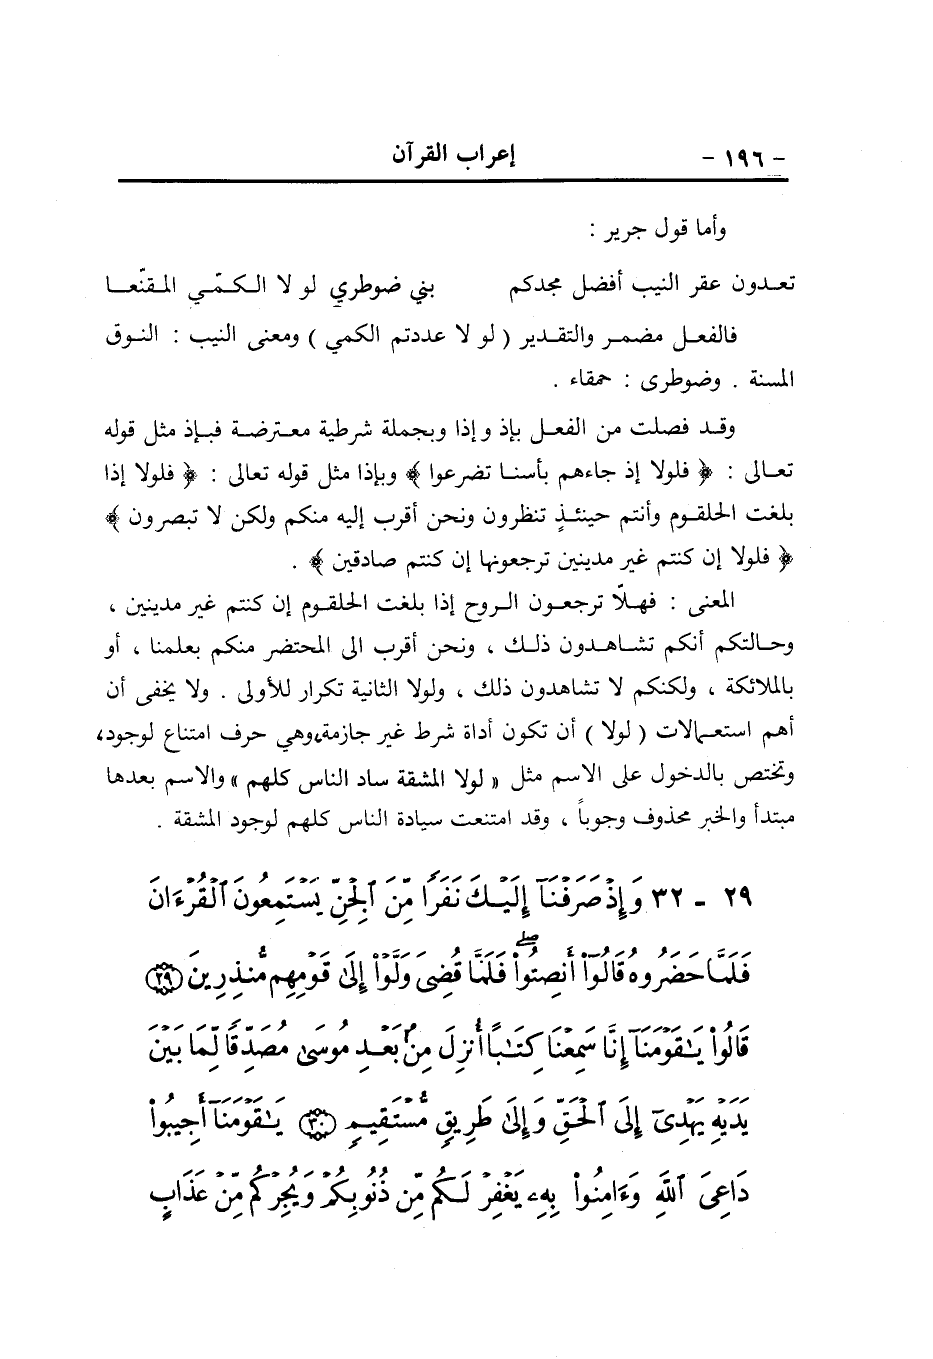 - ١٩٦ - إعراب القرآن
وأما قول جرير :
تعـدون عقر النيب أفضل مجدكم بني ضوطري لو لا الـكـمّـي المـقنّعـا
فالفعـل مضمـر والتقديـر ( لو لا عددتم الكمي ) ومعنى النيب : النـوق
المسنة . وضوطرى : حمقاء .
وقـد فصلت من الفعـل بإذ وإذا وبجملة شرطية معـترضـة فبـإذ مثل قوله
تعـالى : ﴿ فلولا إذ جاءهم بأسنـا تضرعوا ﴾ وبإذا مثل قوله تعالى : ﴿ فلولا إذا
بلغت الحلقـوم وأنتم حينئـذٍ تنظرون ونحن أقرب إليه منكم ولكن لا تبصرون ﴾
﴿ فلولا إن كنتم غير مدينين ترجعونها إن كنتم صادقين ﴾ .
المعنى : فهـلّا ترجعـون الـروح إذا بلغت الحلقـوم إن كنتم غير مدينين ،
وحـالتكم أنكم تشـاهـدون ذلـك ، ونحن أقرب الى المحتضر منكم بعلمنا ، أو
بالملائكة ، ولكنكم لا تشاهدون ذلك ، ولولا الثانية تكرار للأولى . ولا يخفى أن
أهم استعـمالات ( لولا ) أن تكون أداة شرط غير جازمة،وهي حرف امتناع لوجود،
وتختص بالدخول على الاسم مثل « لولا المشقة ساد الناس كلهم » والاسم بعدها
مبتدأ والخبر محذوف وجوباً ، وقد امتنعت سيادة الناس كلهم لوجود المشقة .
٢٩ - ٣٢ وَإِذْ صَرَفْنَآ إِلَيْكَ نَفَرًا مِّنَ ٱلْجِنِّ يَسْتَمِعُونَ ٱلْقُرْءَانَ
فَلَمَّا حَضَرُوهُ قَالُوٓا۟ أَنصِتُوا۟ ۖ فَلَمَّا قُضِىَ وَلَّوْا۟ إِلَىٰ قَوْمِهِم مُّنذِرِينَ ﴿٢٩﴾
قَالُوا۟ يَـٰقَوْمَنَآ إِنَّا سَمِعْنَا كِتَـٰبًا أُنزِلَ مِنۢ بَعْدِ مُوسَىٰ مُصَدِّقًا لِّمَا بَيْنَ
يَدَيْهِ يَهْدِىٓ إِلَى ٱلْحَقِّ وَإِلَىٰ طَرِيقٍ مُّسْتَقِيمٍ ﴿٣٠﴾ يَـٰقَوْمَنَآ أَجِيبُوا۟
دَاعِىَ ٱللَّهِ وَءَامِنُوا۟ بِهِۦ يَغْفِرْ لَكُم مِّن ذُنُوبِكُمْ وَيُجِرْكُم مِّنْ عَذَابٍ